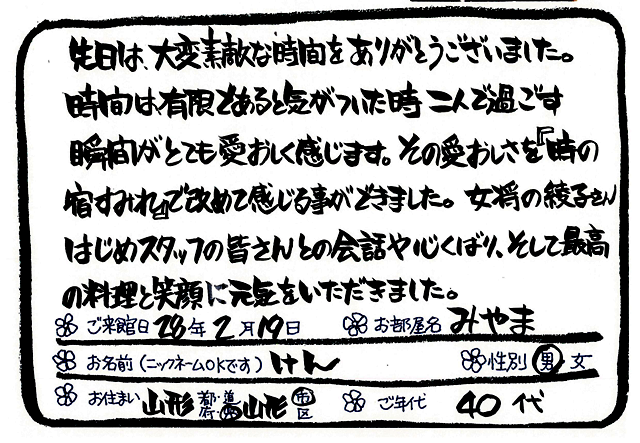 先日は、大変素敵な時間をありがとうございました。
時間は有限であると気がついた時 二人で過ごす
瞬間がとても愛おしく感じます。その愛おしさを『時の
宿すみれ』で改めて感じる事ができました。女将の綾子さん
はじめスタッフの皆さんとの会話や心くばり、そして最高
の料理と笑顔に元気をいただきました。
ご来館日 28年 2月 19日 お部屋名 みやま
お名前(ニックネームOKです) けん 性別 男 女
お住まい 山形 都・道・府・県 山形 市・区 ご年代 40代